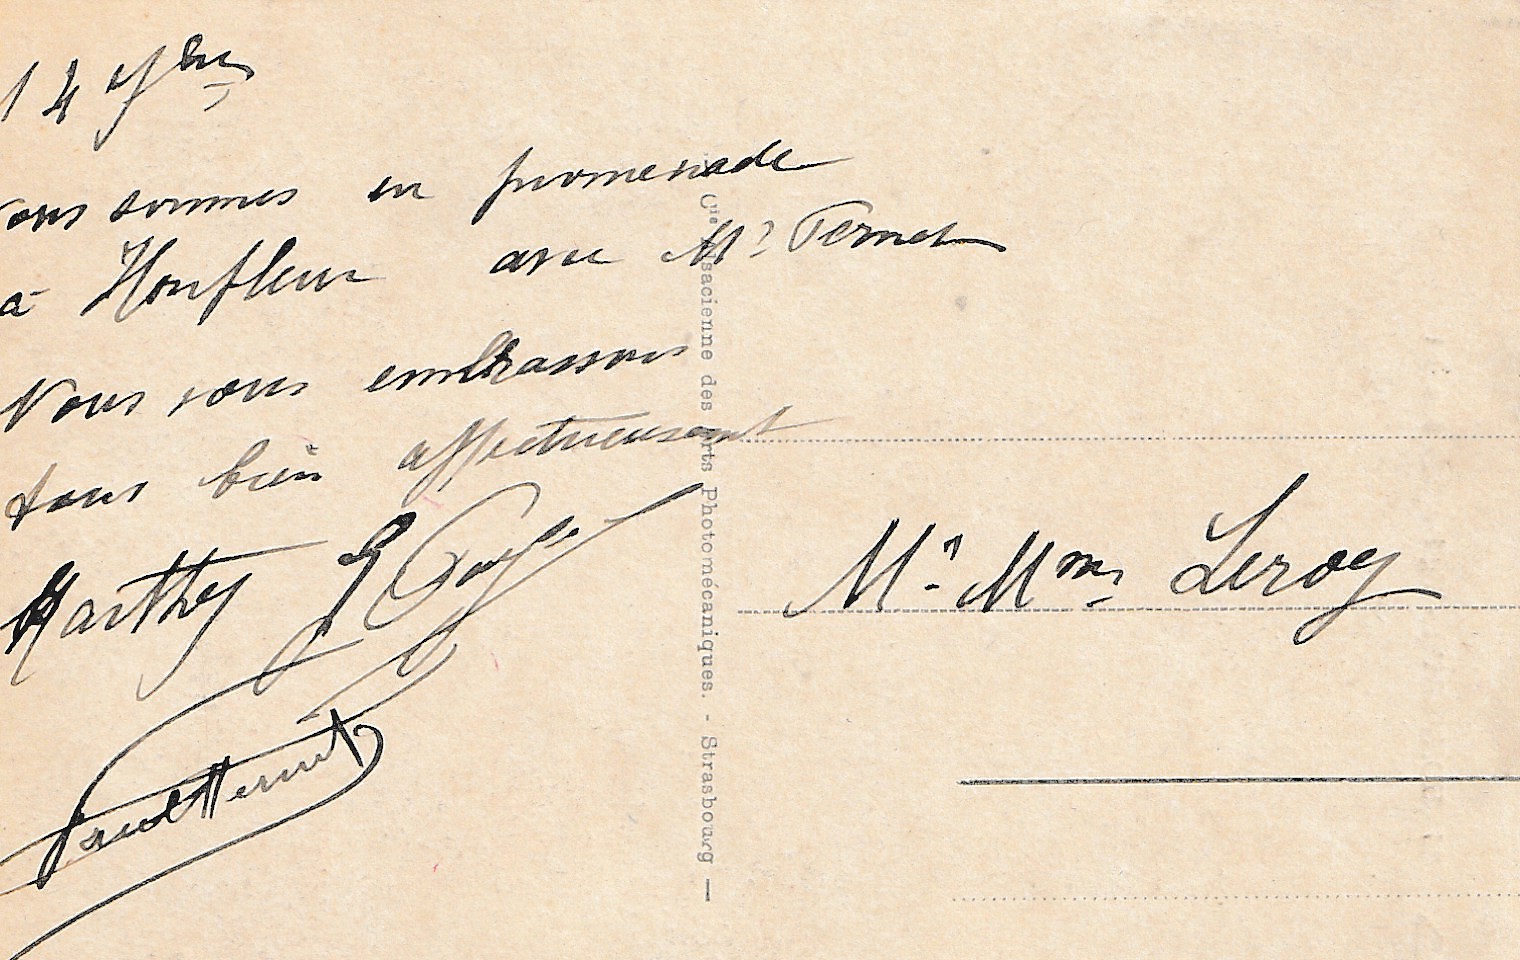 14
Nous sommes en promenade
à Honfleur avec Mr Fernet
Nous vous embrassons
tous bien affectueusement
Marthe
Paul Fernet
Cie Alsacienne des Arts Photomécaniques. - Strasbourg —
Mr. Mme. Leroy